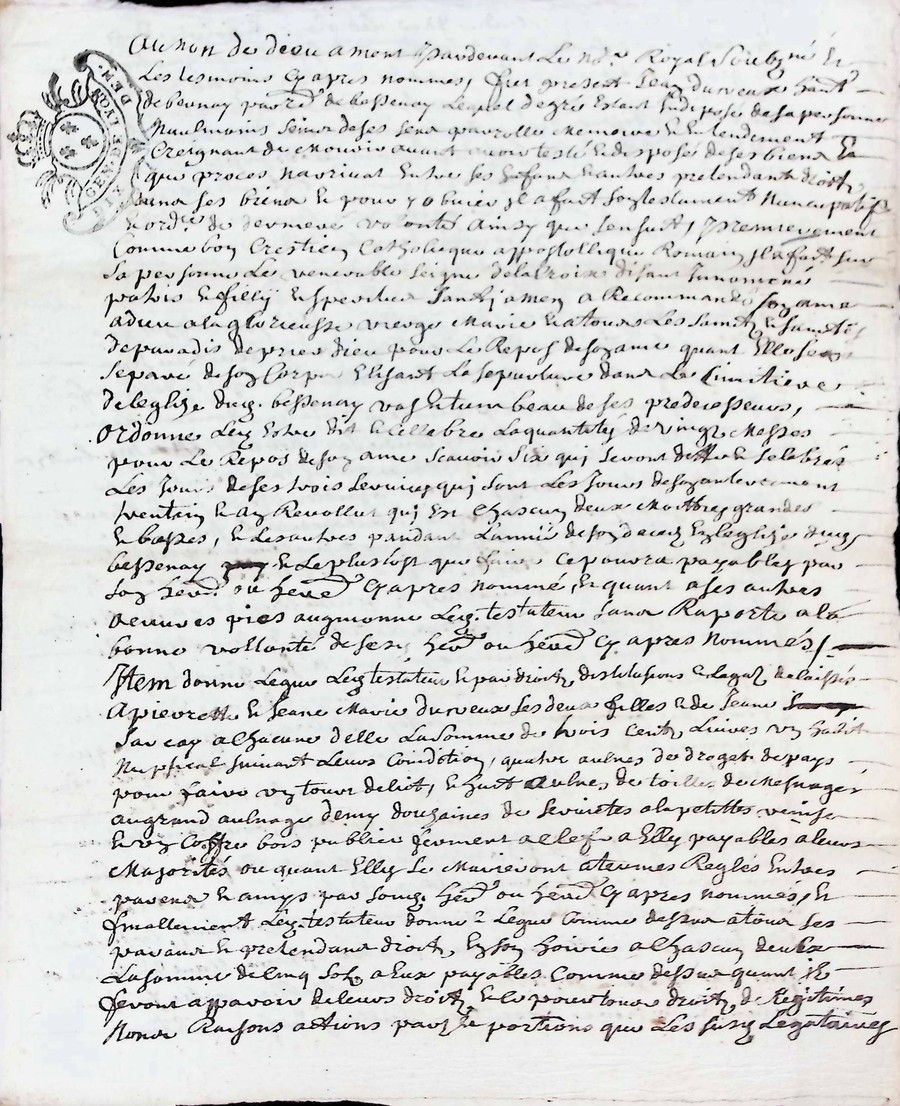 GEN. DE LYON DEM.
SIX
Au non de dieu amen / pardevant Le no.re Royal soubzné Et
Les tesmoins Cy apres nommes, fut present Jean durveux habt
de bernay parre de bessenay Lequel de gré Estant Indisposé de sa personne
Neaulmoins sein de ses sens parolle memoire et Entendement
Creignant de mourir avant avoir testé et disposé de ses biens Et
que proces narrivat Entre ses Enfans et autres pretendant droitz
dans ses biens et pour y obvier Il a fait son testament Nuncupatif
et ordre de derniere volonté Ainsy que sensuit, premierement
Comme bon Crestien Catholicque appostollique Romain Il a fait sur
sa personne Le venerable seigne de la Croix disant Innomine
patris et filly et speritus santy amen a Recommandé son ame
a dieu a la glorieusse vierge marie et a tous Les saints et saintes
de paradis de prier dieu pour Le Repos de son ame quant Elle sera
separé de son Corps Elisant La sepulture dans Le Cimitiere
de leglize dud. bessenay vas et tumbeau de ses predecesseurs,
ordonne Luy Estre dit et cellebre La quantité de vingt messes
pour Le Repos de son ame scavoir six qui seront dittes et celebrés
Les Jours de ses trois services qui sont Les Jours de son enterrement
trentain et an Revollut qui Est Chascun deux messes grandes
et basses, et Les autres pandant L'année de son deces En leglize dud.
bessenay et Le plustost que faire ce poura payables par
son herer ou herere Cy apres nommé, et quant a ses autres
aeuvres pies augmonne Led. testateur sans Raporte a la
bonne vollanté de sesd. herer ou herere Cy apres nommés /.
Item donne Legue Led. testateur et par droitz dinstitusions et Legat delaissés
a pierrette et Jeane Marie durveux ses deux filles et de Jeane
Jarcay a Chacune delle La somme de trois Cents Livres un habit
Nuptical suivant Leurs Condition, quatre aulnes de droget de pays
pour faire un tour de lict, et huit aulnes de toille de mesnage
au grand aulnage demy douzaines de serviettes a la petitte venise
et un Coffre bois publier ferment a clef a Elle payables a leurs
Majorités ou quant Elle se Marieront a termes Reglés Entre
parens et amys par sond. herer ou herere Cy apres nommés, Et
finallement Led. testateur donne et Legue Comme dessus a tous ses
parans et pretendans droitz En son hoirie a Chascun deux
La somme de Cinq solz a Eux payables Comme dessus quant Ilz
feront apparoir de leurs droitz et ce pour tous droitz de Legitimes
Noms Raisons actions part et portions que Les susd. Legataires